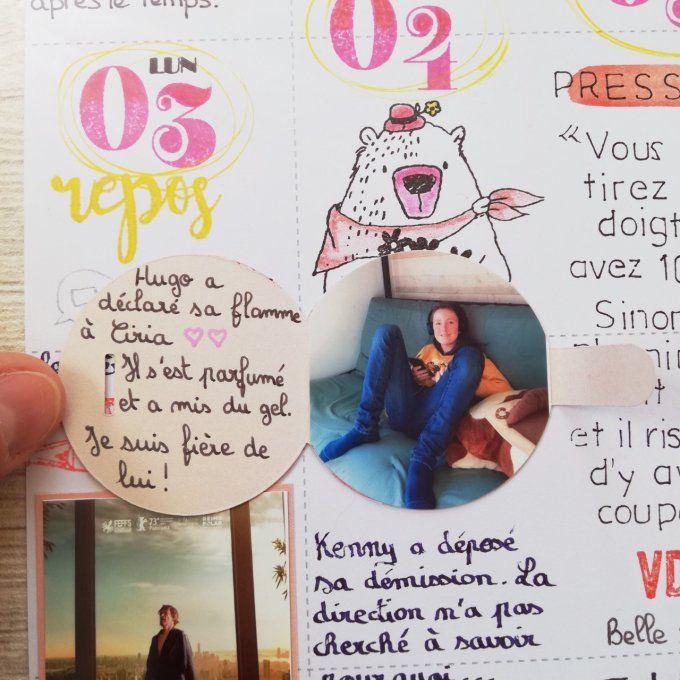 après le temps.
LUN
03
repos
04
03
Hugo a
déclaré sa flamme
à Tiria
Il s'est parfumé
et a mis du gel.
Je suis fière de
lui !
FEFFS
73
Kenny a déposé
sa démission. La
direction n'a pas
cherché à savoir
pourquoi
PRESS
«Vous
tirez
doigt
avez 10
Sinon
et il ris
d'y av
coup
VD
Belle